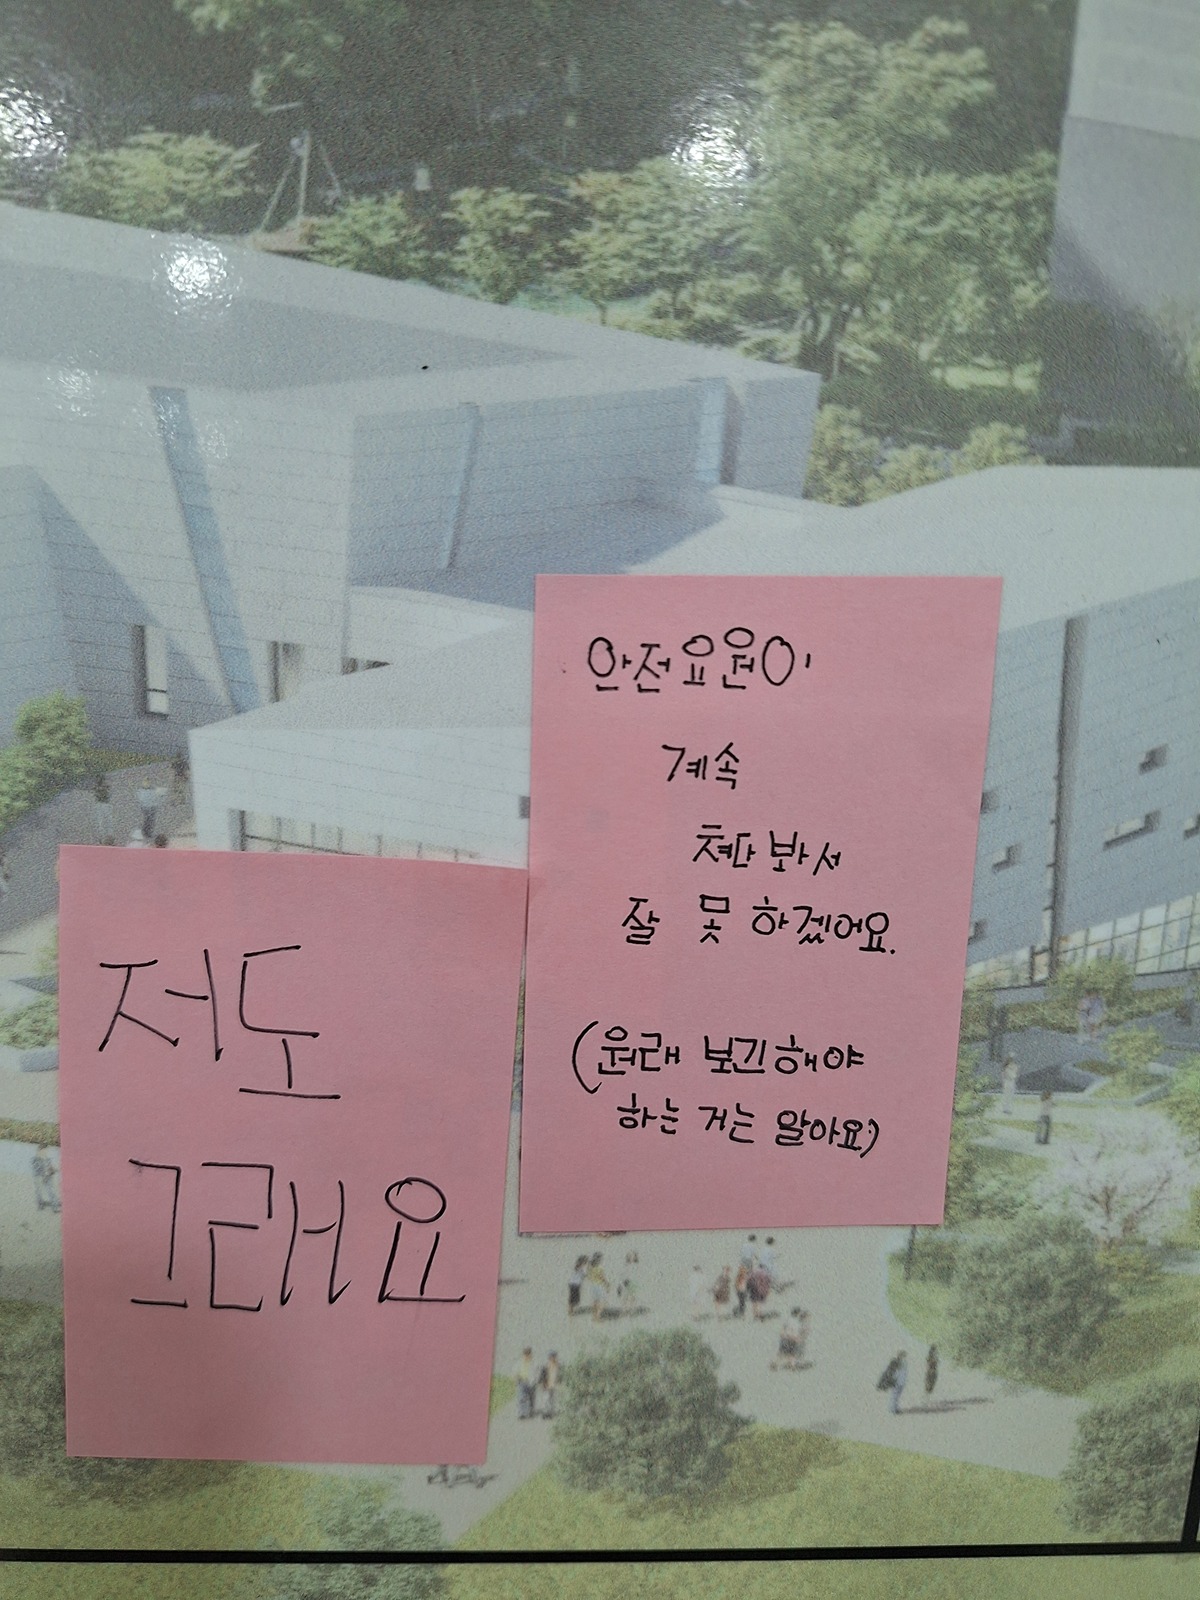 안전요원이
계속
쳐다 봐서
잘 못 하겠어요.
(원래 보긴해야
하는 거는 알아요)
저도
그래요